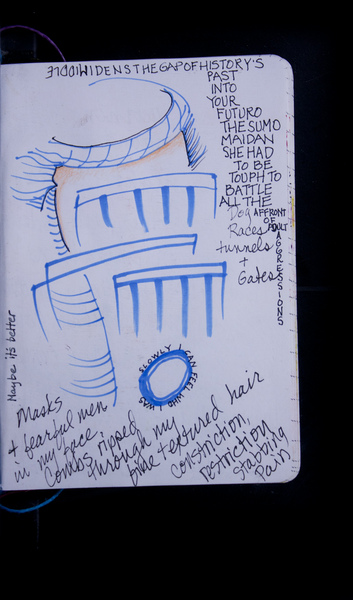 ELDDIWIDENS THE GAP OF HISTORY'S
PAST
INTO
YOUR
FUTURO
THE SUMO
MAIDAN
SHE HAD
TO BE
TOUPH TO
BATTLE
ALL THE
Dog
Races
tunnels
+
Gates
AFFRONT
OF
ADULT
AGGRESSIONS
SLOWLY I CAN FEEL WHO I WAS
Maybe it's better
Masks
+ fearful men
in my face,
Combs ripped
through my
fine textured hair
constriction,
restriction
stabbing
pain